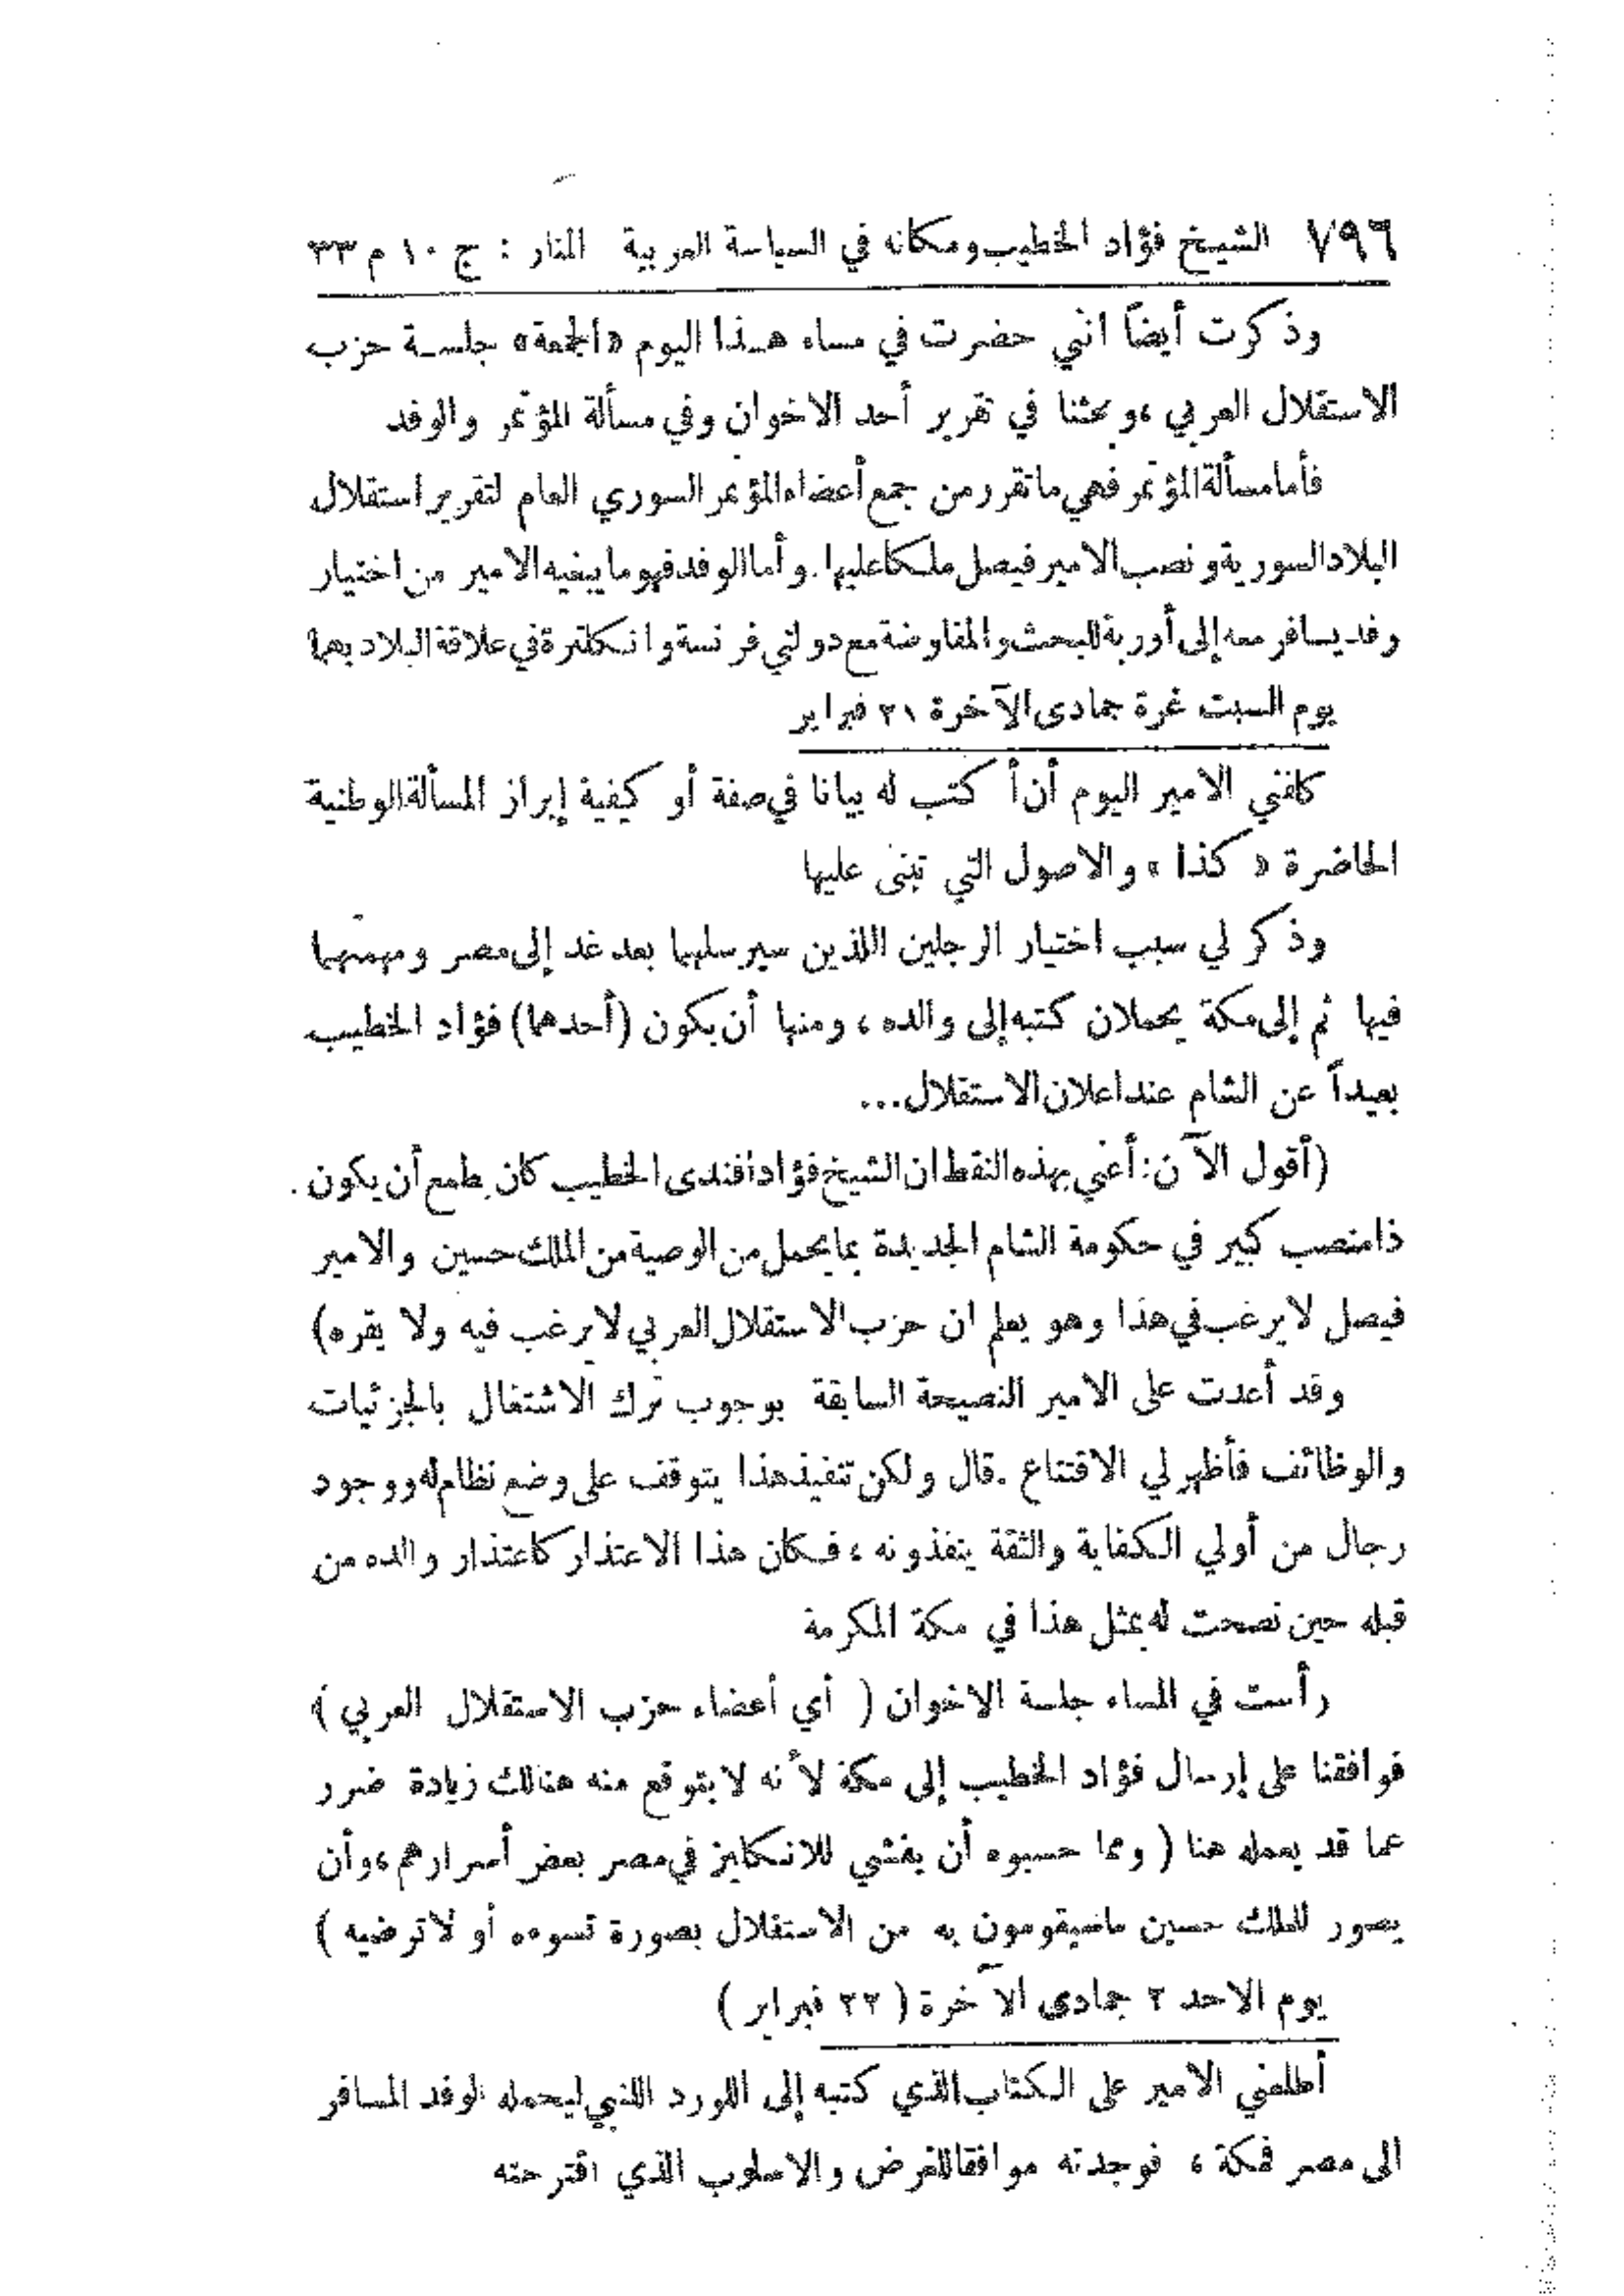 ٧٩٦ الشيخ فؤاد الخطيب ومكانه في السياسة العربية المنار : ج ١٠ م ٣٣
وذكرت أيضاً انني حضرت في مساء هذا اليوم «الجمعة» جلسة حزب
الاستقلال العربي ، وبحثنا في تقرير أحد الاخوان وفي مسألة المؤتمر والوفد
فأما مسألة المؤتمر فهي ما تقرر من جمع أعضاء المؤتمر السوري العام لتقرير استقلال
البلاد السورية ونصب الامير فيصل ملكا عليها . وأما الوفد فهو ما يبغيه الامير من اختيار
وفد يسافر معه إلى أوربة للبحث والمفاوضة مع دولتي فرنسة وانكلترة في علاقة البلاد بهما
يوم السبت غرة جمادى الآخرة ٢١ فبراير
كلفني الامير اليوم أن أكتب له بيانا في صفة أو كيفية إبراز المسألة الوطنية
الحاضرة « كذا » والاصول التي تبنى عليها
وذكر لي سبب اختيار الرجلين اللذين سيرسلهما بعد غد إلى مصر ومهمتهما
فيها ثم إلى مكة يحملان كتبه إلى والده ، ومنها أن يكون (أحدهما) فؤاد الخطيب
بعيداً عن الشام عند اعلان الاستقلال...
(أقول الآن : أعني بهذه النقط ان الشيخ فؤاد افندى الخطيب كان يطمع أن يكون
ذا منصب كبير في حكومة الشام الجديدة بما يحمل من الوصية من الملك حسين والامير
فيصل لا يرغب في هذا وهو يعلم ان حزب الاستقلال العربي لا يرغب فيه ولا يقره)
وقد أعدت على الامير النصيحة السابقة بوجوب ترك الاشتغال بالجزئيات
والوظائف فأظهر لي الاقتناع . قال ولكن تنفيذ هذا يتوقف على وضع نظام له ووجود
رجال من أولي الكفاية والثقة ينفذونه ، فكان هذا الاعتذار كاعتذار والده من
قبله حين نصحت له بمثل هذا في مكة المكرمة
رأست في المساء جلسة الاخوان ( أي أعضاء حزب الاستقلال العربي )
فوافقنا على إرسال فؤاد الخطيب إلى مكة لأنه لا يتوقع منه هنالك زيادة ضرر
عما قد يعمله هنا ( ومما حسبوه أن يفشي للانكليز في مصر بعض أسرارهم ، وأن
يصور للملك حسين ما سيقومون به من الاستقلال بصورة تسوءه أو لا ترضيه )
يوم الاحد ٢ جمادى الآخرة ( ٢٢ فبراير )
أطلعني الامير على الكتاب الذي كتبه إلى اللورد اللنبي ليحمله الوفد المسافر
الى مصر فمكة ، فوجدته موافقا للغرض والاسلوب الذي اقترحته